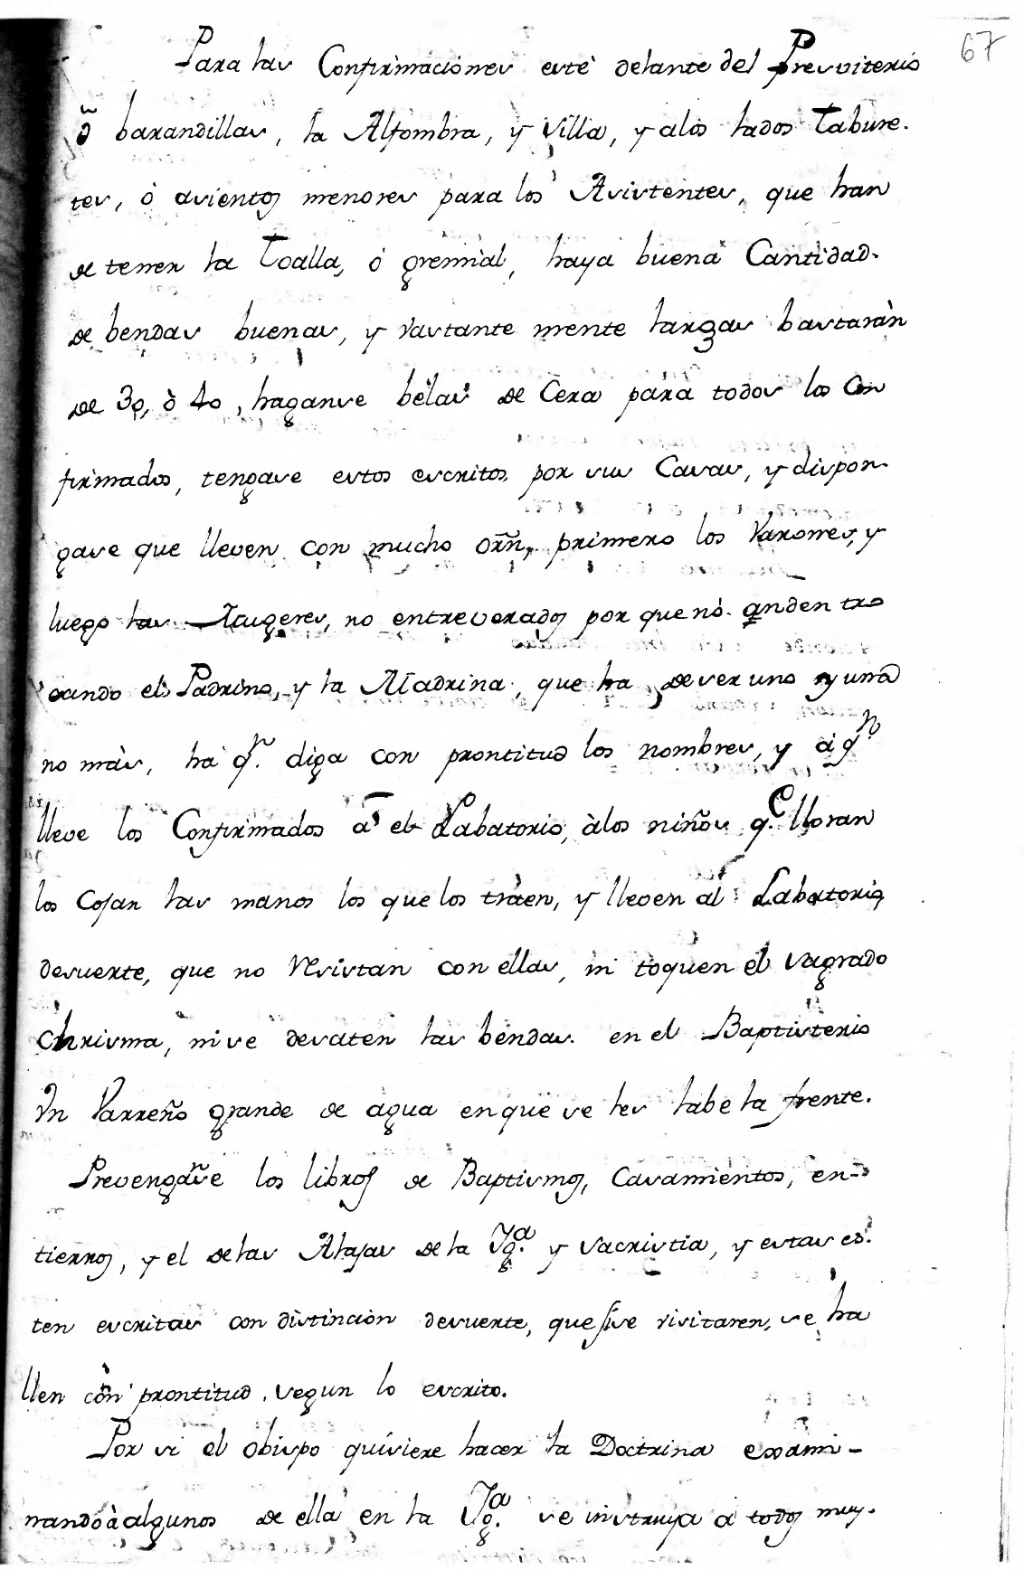 67
Para las Confirmaciones esté delante del Presviterio
õ barandillas, la Alfombra, y silla, y alos lados Tabure-
tes, ó asientos menores para los Asistentes, que han
de tener la Toalla, ó gremial, haya buena Cantidad
de bendas buenas, y vastante mente largas bastaràn
de 30, ò 40, haganse bèlas de Cera para todos los Con
firmados, tengase estos escritos, por sus Casas, y dispon-
gase que lleven con mucho orñ, primero los Varones, y
luego las Mugeres, no entreverados por que nó anden tro
cando el Padrino, y la Madrina, que ha de ser uno y una
no màs, ha qn. diga con prontitud los nombres, y á qn.
lleve los Confirmados a el Labatorio, àlos niños q.e lloran
los Cojan las manos los que los tràen, y lleven al Labatorio,
desuerte, que no resistan con ellas, ni toquen el sagrado
Chrisma, ni se desaten las bendas. en el Baptisterio
Vn Varreño grande de agua en que se les labe la frente.
Prevengañse los libros de Baptismos, Casamientos, en-
tierros, y el de las Alajas de la Yg.a y sacristia, y estas es-
ten escritas con distincion desuerte, que si se visitaren, se ha
llen còn prontitud, segun lo escrito.
Por si el obispo quisiere hacer la Doctrina exami-
nando à algunos de ella en la Yg.a se instruya a todos muy-